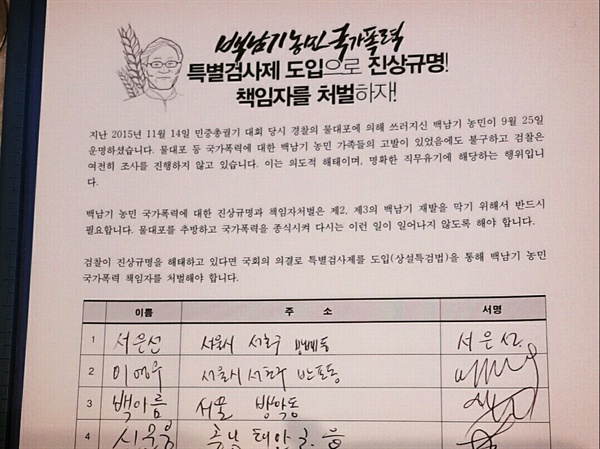 백남기 농민 국가폭력
특별검사제 도입으로 진상규명!
책임자를 처벌하자!
지난 2015년 11월 14일 민중총궐기 대회 당시 경찰의 물대포에 의해 쓰러지신 백남기 농민이 9월 25일
운명하셨습니다. 물대포 등 국가폭력에 대한 백남기 농민 가족들의 고발이 있었음에도 불구하고 검찰은
여전히 조사를 진행하지 않고 있습니다. 이는 의도적 해태이며, 명확한 직무유기에 해당하는 행위입니
다.
백남기 농민 국가폭력에 대한 진상규명과 책임자처벌은 제2, 제3의 백남기 재발을 막기 위해서 반드시
필요합니다. 물대포를 추방하고 국가폭력을 종식시켜 다시는 이런 일이 일어나지 않도록 해야 합니다.
검찰이 진상규명을 해태하고 있다면 국회의 의결로 특별검사제를 도입(상설특검법)을 통해 백남기 농민
국가폭력 책임자를 처벌해야 합니다.
이름 주 소 서명
1 서은선 서울시 서초구 방배동 서은선
2 서울시 서초구 반포동
3 백아름 서울 방학동
4 충남 태안군 읍